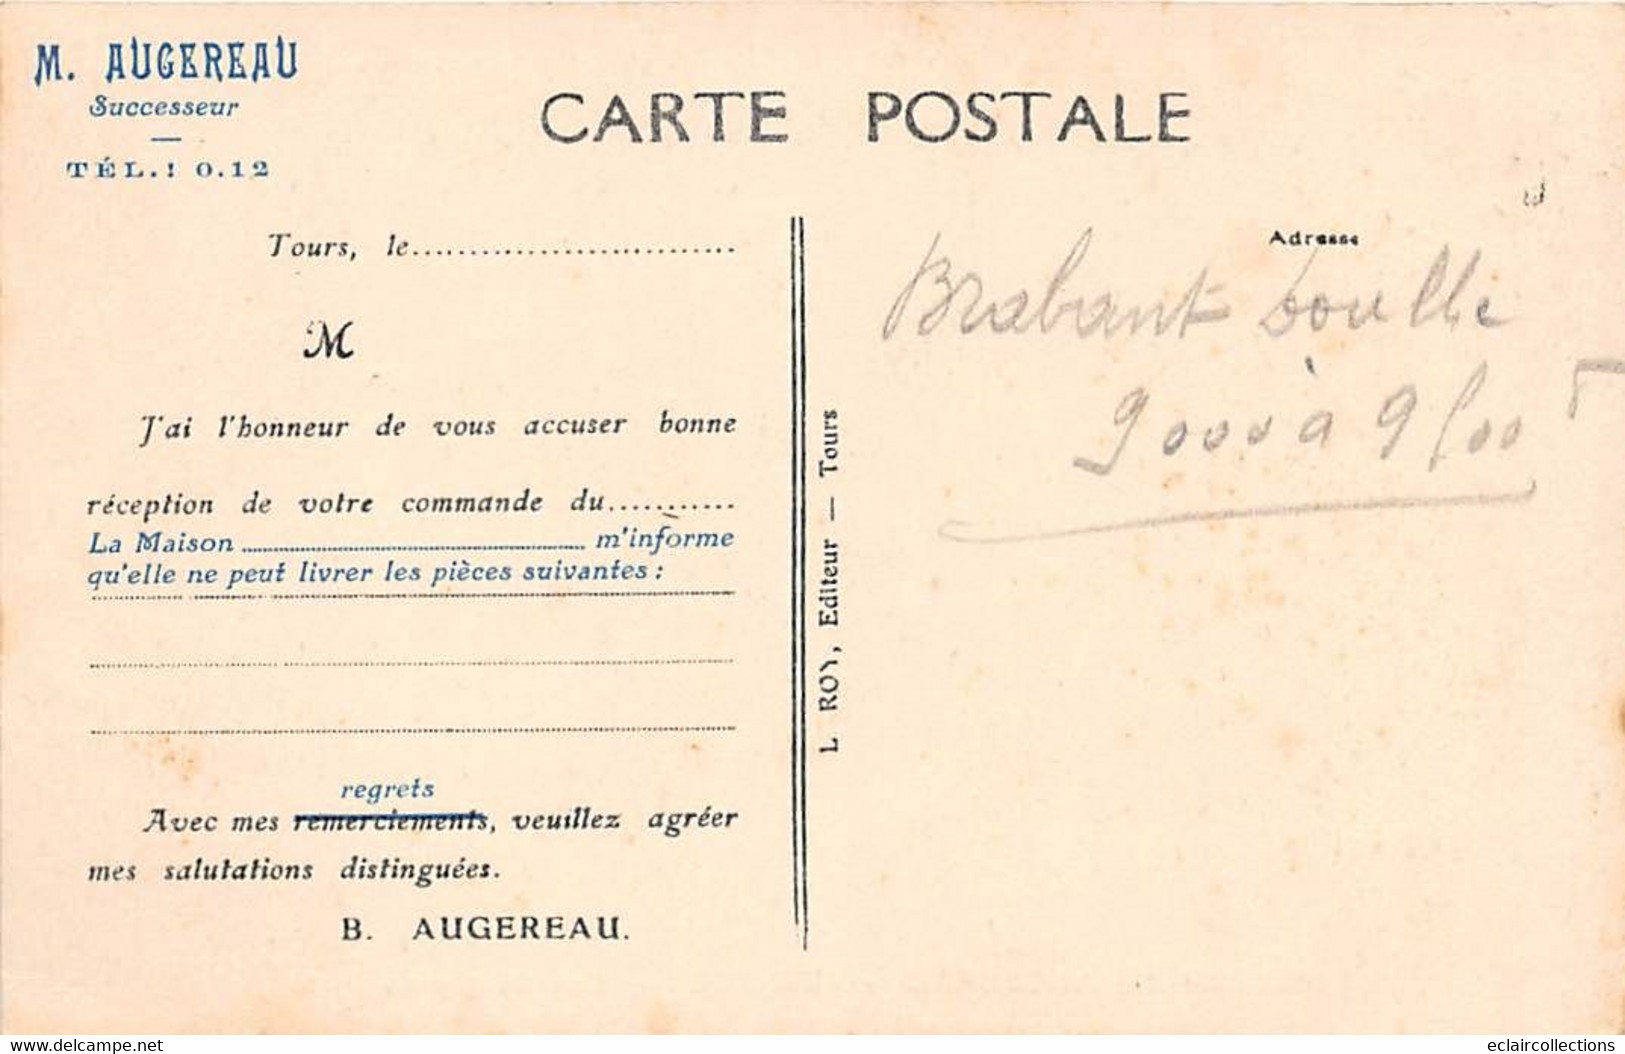 M. AUGEREAU
Successeur
—
TÉL.! 0.12
CARTE POSTALE
Tours, le..............................
M
J'ai l'honneur de vous accuser bonne
réception de votre commande du...........
La Maison ........................ m'informe
qu'elle ne peut livrer les pièces suivantes :
regrets
Avec mes remerciements, veuillez agréer
mes salutations distinguées.
B. AUGEREAU.
L. ROY, Editeur — Tours
Adresse
Brabant
9000 à 9500
delcampe.net
eclaircollections